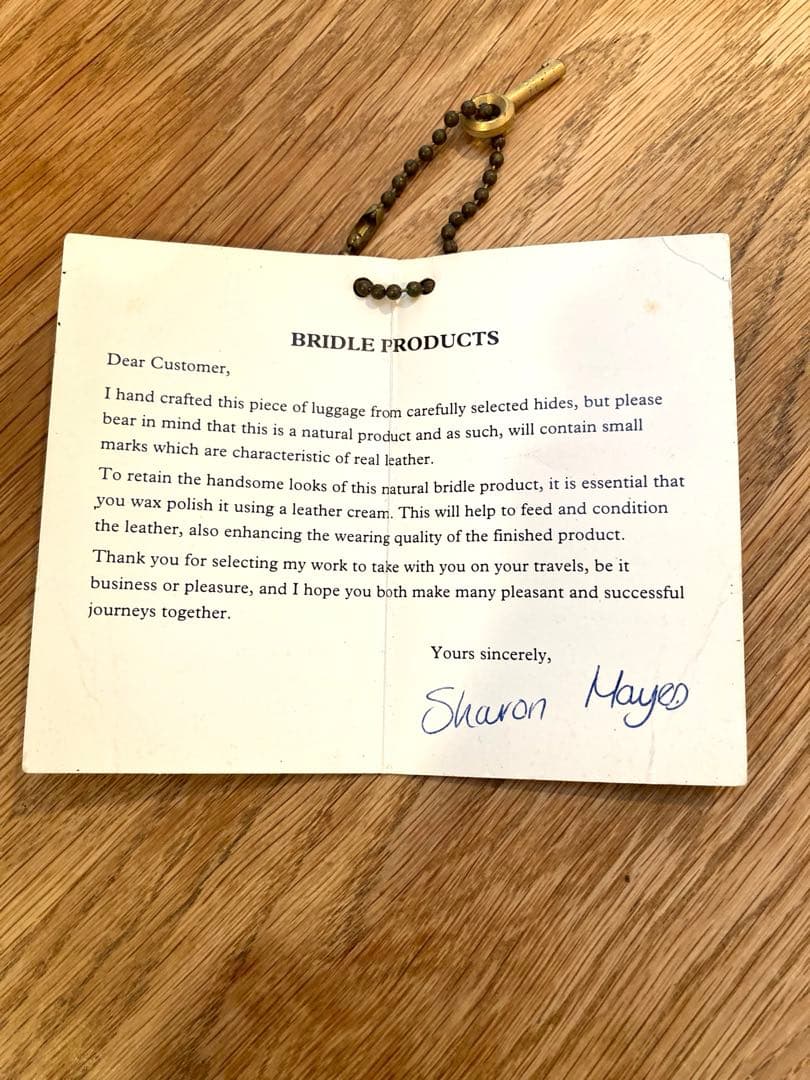 BRIDLE PRODUCTS
Dear Customer,
I hand crafted this piece of luggage from carefully selected hides, but please
bear in mind that this is a natural product and as such, will contain small
marks which are characteristic of real leather.
To retain the handsome looks of this natural bridle product, it is essential that
you wax polish it using a leather cream. This will help to feed and condition
the leather, also enhancing the wearing quality of the finished product.
Thank you for selecting my work to take with you on your travels, be it
business or pleasure, and I hope you both make many pleasant and successful
journeys together.
Yours sincerely,
Sharon Mayes